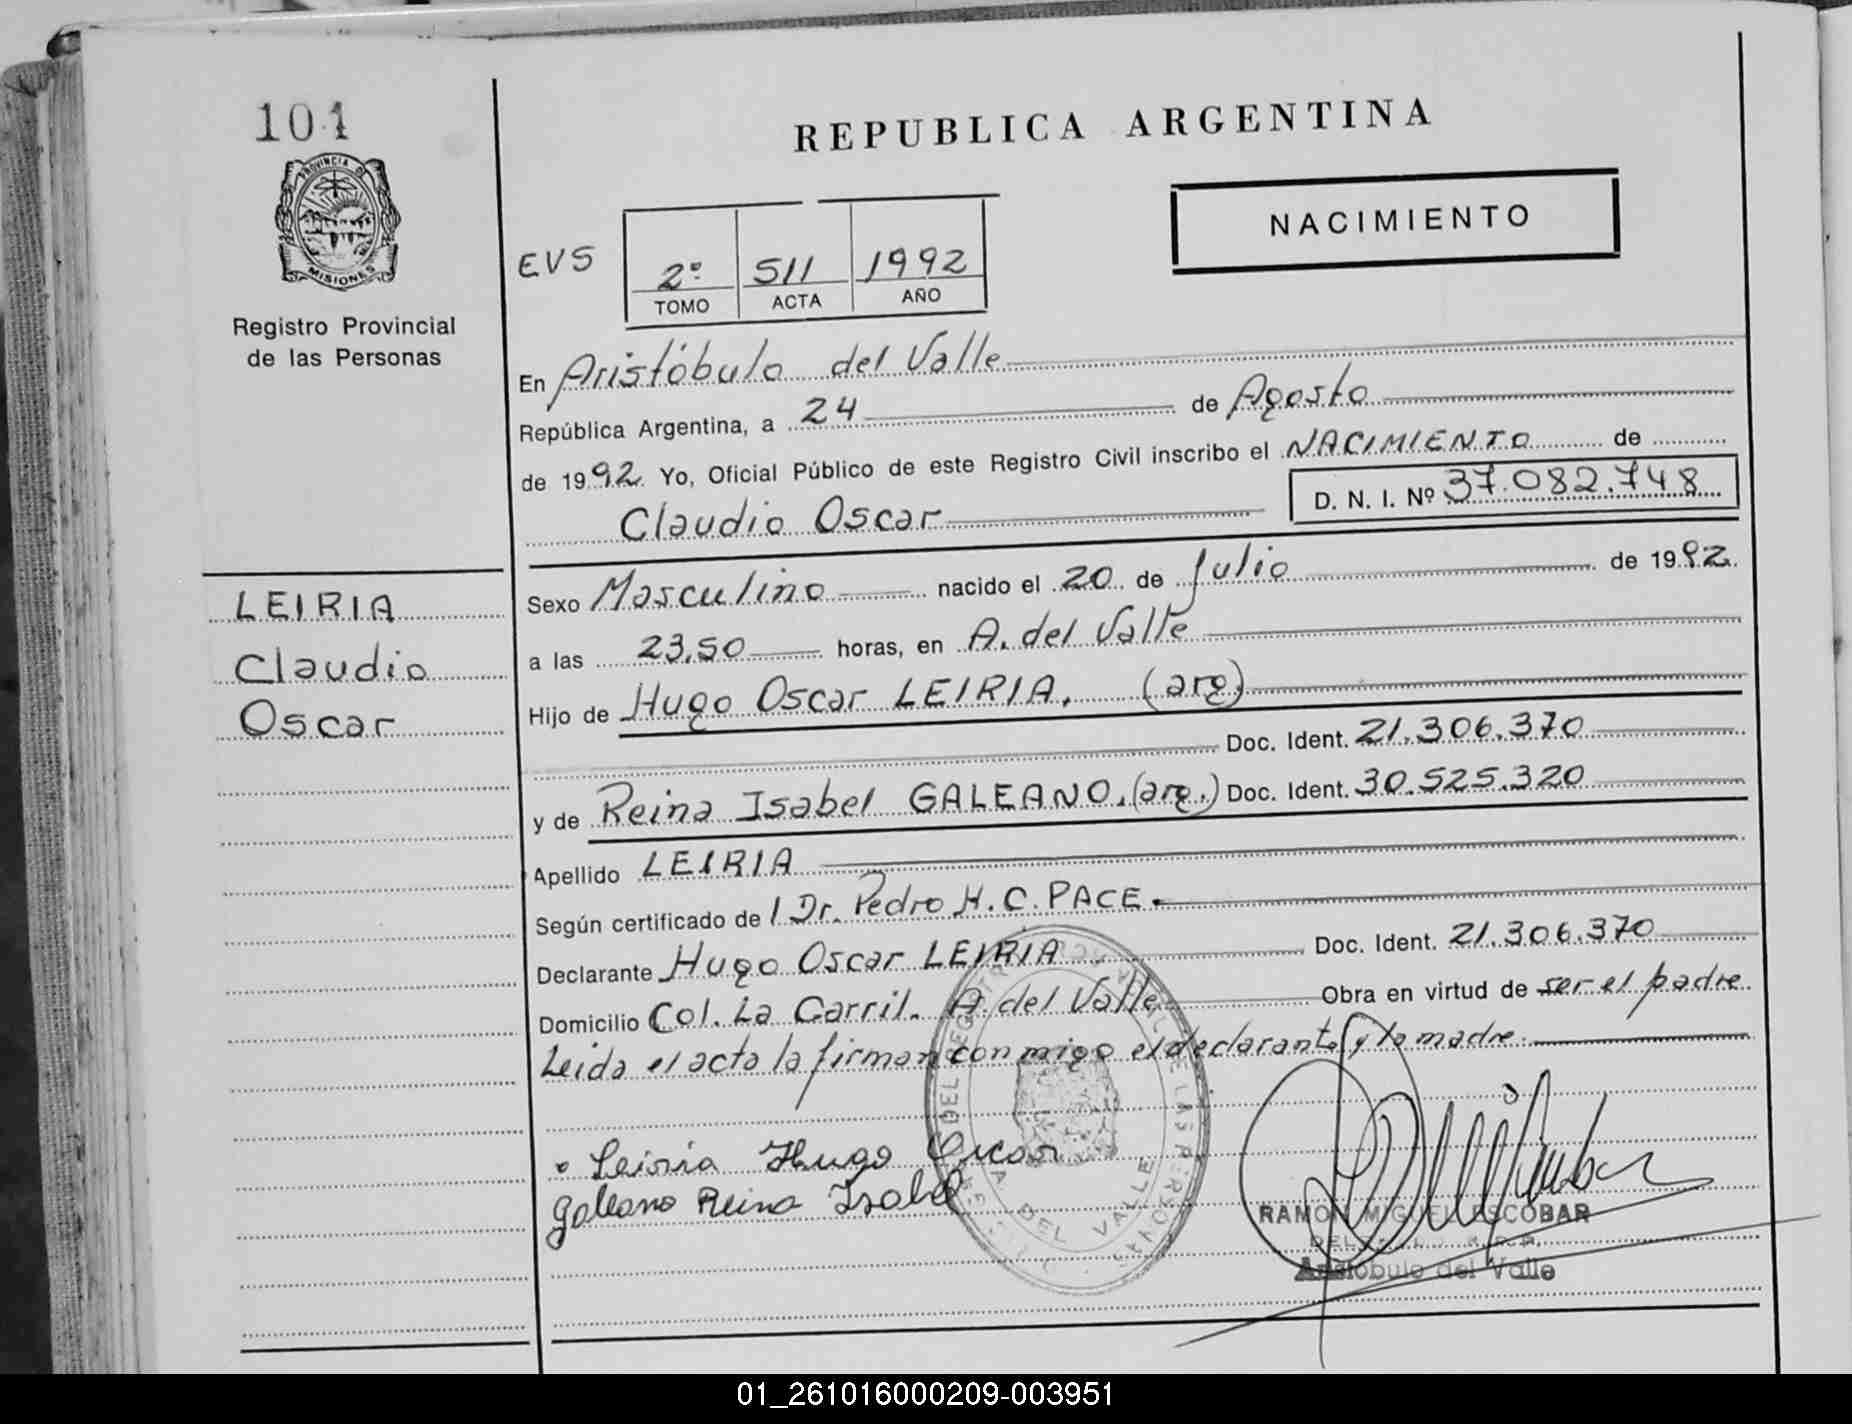 101
PROVINCIA DE
MISIONES
Registro Provincial
de las Personas
LEIRIA
Claudio
Oscar
REPUBLICA ARGENTINA
NACIMIENTO
EVS
2º 511 1992
TOMO ACTA AÑO
En Aristóbulo del Valle
República Argentina, a 24 de Agosto
de 1992 Yo, Oficial Público de este Registro Civil inscribo el NACIMIENTO de
Claudio Oscar D. N. I. Nº 37.082.748
Sexo Masculino nacido el 20 de Julio de 1992.
a las 23,50 horas, en A. del Valle
Hijo de Hugo Oscar LEIRIA, (arg)
Doc. Ident. 21.306.370
y de Reina Isabel GALEANO, (arg.) Doc. Ident. 30.525.320
Apellido LEIRIA
Según certificado de l Dr. Pedro H. C. PACE.
Declarante Hugo Oscar LEIRIA Doc. Ident. 21.306.370
Domicilio Col. La Carril. A. del Valle Obra en virtud de ser el padre
Leida el acta la firman conmigo el declarante y la madre.
Leiria Hugo Oscar
Galeano Reina Isabel
RAMON MIGUEL ESCOBAR
Aristobulo del Valle
01_261016000209-003951